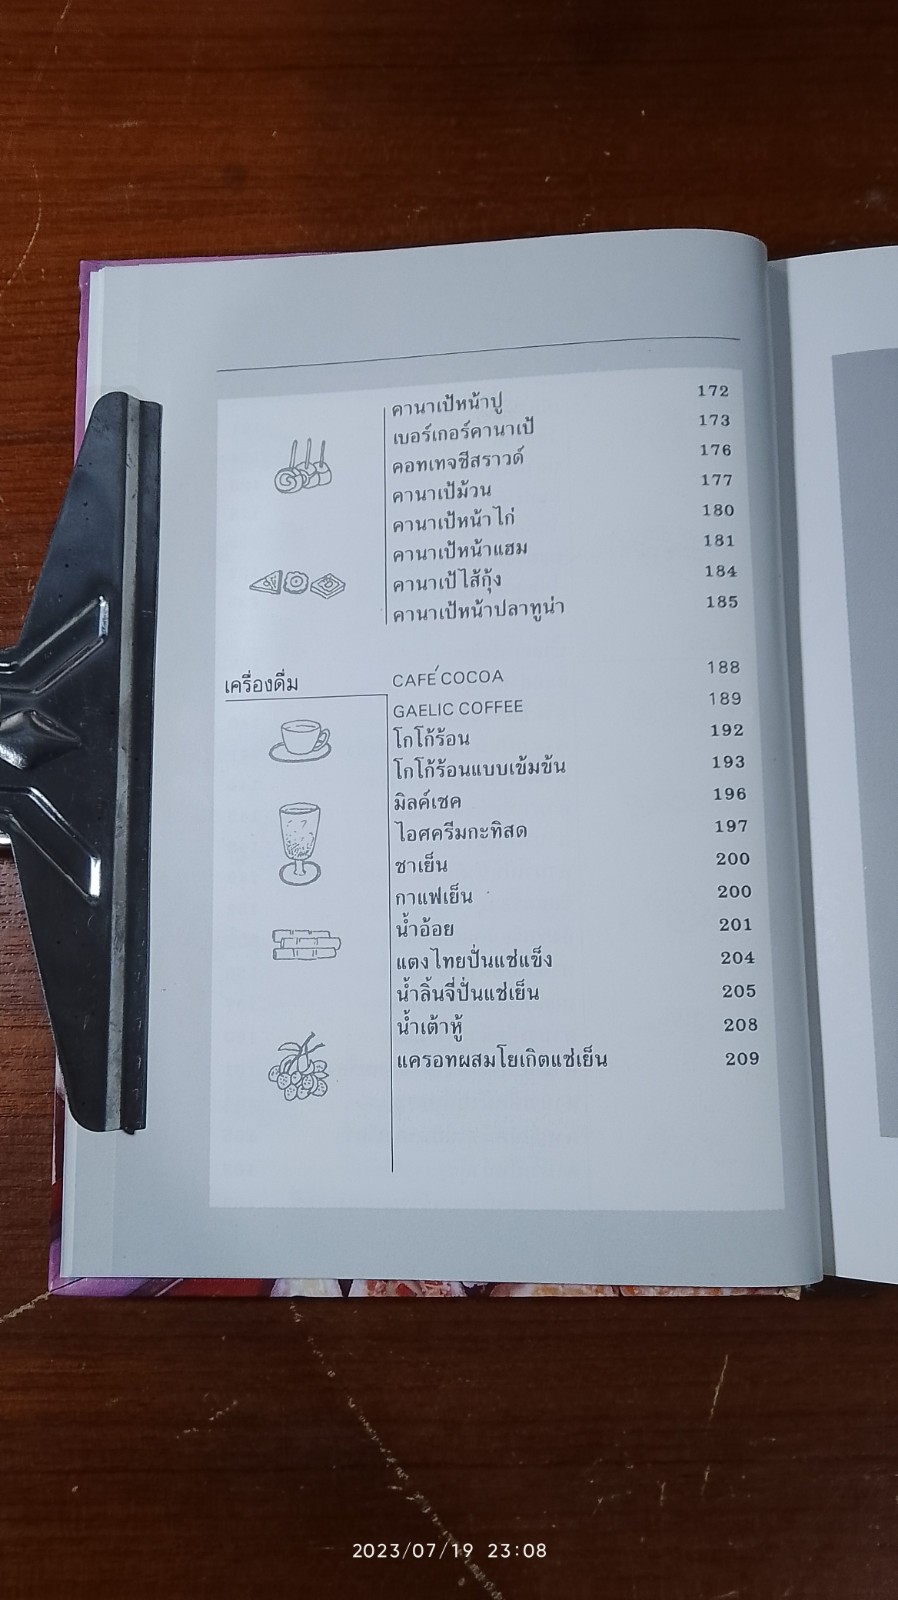 คานาเป้หน้าปู 172
เบอร์เกอร์คานาเป้ 173
คอทเทจชีสราวด์ 176
คานาเป้ม้วน 177
คานาเป้หน้าไก่ 180
คานาเป้หน้าแฮม 181
คานาเป้ไส้กุ้ง 184
คานาเป้หน้าปลาทูน่า 185
เครื่องดื่ม
CAFÉ COCOA 188
GAELIC COFFEE 189
โกโก้ร้อน 192
โกโก้ร้อนแบบเข้มข้น 193
มิลค์เชค 196
ไอศครีมกะทิสด 197
ชาเย็น 200
กาแฟเย็น 200
น้ำอ้อย 201
แตงไทยปั่นแช่แข็ง 204
น้ำลิ้นจี่ปั่นแช่เย็น 205
น้ำเต้าหู้ 208
แครอทผสมโยเกิตแช่เย็น 209
2023/07/19 23:08